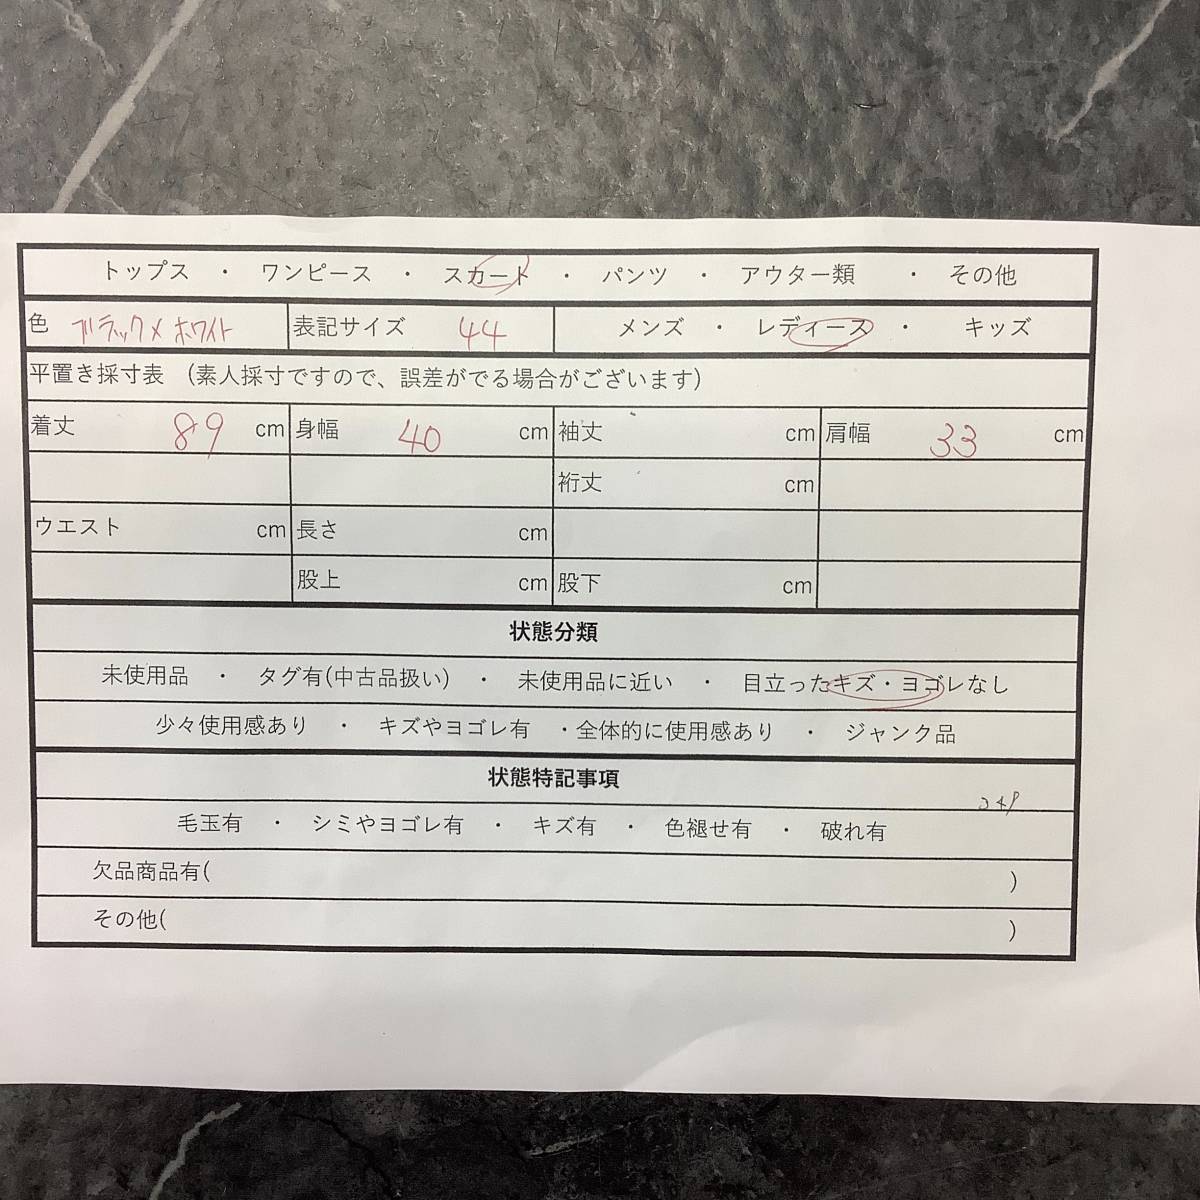 トップス ・ ワンピース ・ スカート ・ パンツ ・ アウター類 ・ その他
色 ブラック×ホワイト 表記サイズ 44 メンズ ・ レディース ・ キッズ
平置き採寸表 (素人採寸ですので、誤差がでる場合がございます)
着丈 89 cm 身幅 40 cm 袖丈 cm 肩幅 33 cm
裄丈 cm
ウエスト cm 長さ cm
股上 cm 股下 cm
状態分類
未使用品 ・ タグ有(中古品扱い) ・ 未使用品に近い ・ 目立ったキズ・ヨゴレなし
少々使用感あり ・ キズやヨゴレ有 ・全体的に使用感あり ・ ジャンク品
状態特記事項
毛玉有 ・ シミやヨゴレ有 ・ キズ有 ・ 色褪せ有 ・ 破れ有
欠品商品有( )
その他( )